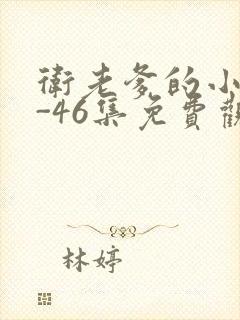 衛老爹的小
-46集免費觀
林婷